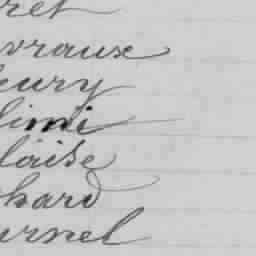 ret
vraux
eury
limi
laise
hard
urnel